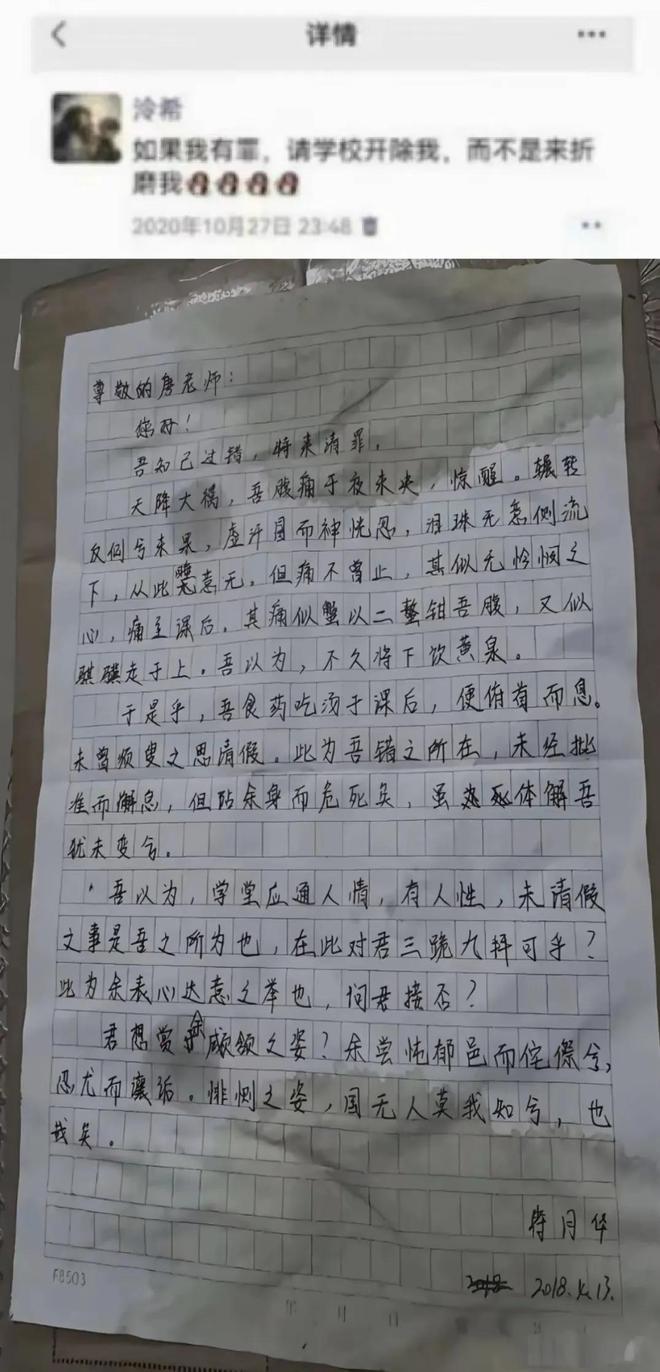 详情
泠希
如果我有罪，请学校开除我，而不是来折
磨我
2020年10月27日 23:48
尊敬的唐老师：
您好！
吾知己过错，将来清罪，
天降大祸，吾腹痛于夜未央，惊醒。辗转
反侧兮未果，虚汗冒而神恍忽，泪珠无意侧流
下，从此意无。但痛不曾止，其似无怜悯之
心，痛至课后，其痛似蟹以二螯钳吾腹，又似
骐骥走于上。吾以为，不久将下饮黄泉。
于是乎，吾食药吃汤于课后，便俯首而息。
未曾须臾之思清假。此为吾错之所在，未经批
准而懈息，但阽余身而危死矣，虽体解吾
犹未变兮。
吾以为，学堂应通人情，有人性，未清假
之事是吾之所为也，在此对君三跪九拜可乎？
此为余表心达意之举也，问君接否？
君想赏余顑颔之姿？余尝忳郁邑而侘傺兮，
忍尤而攘诟。悱恻之姿，国无人莫我知兮，也
哉矣。
2018.4.13.
FB503